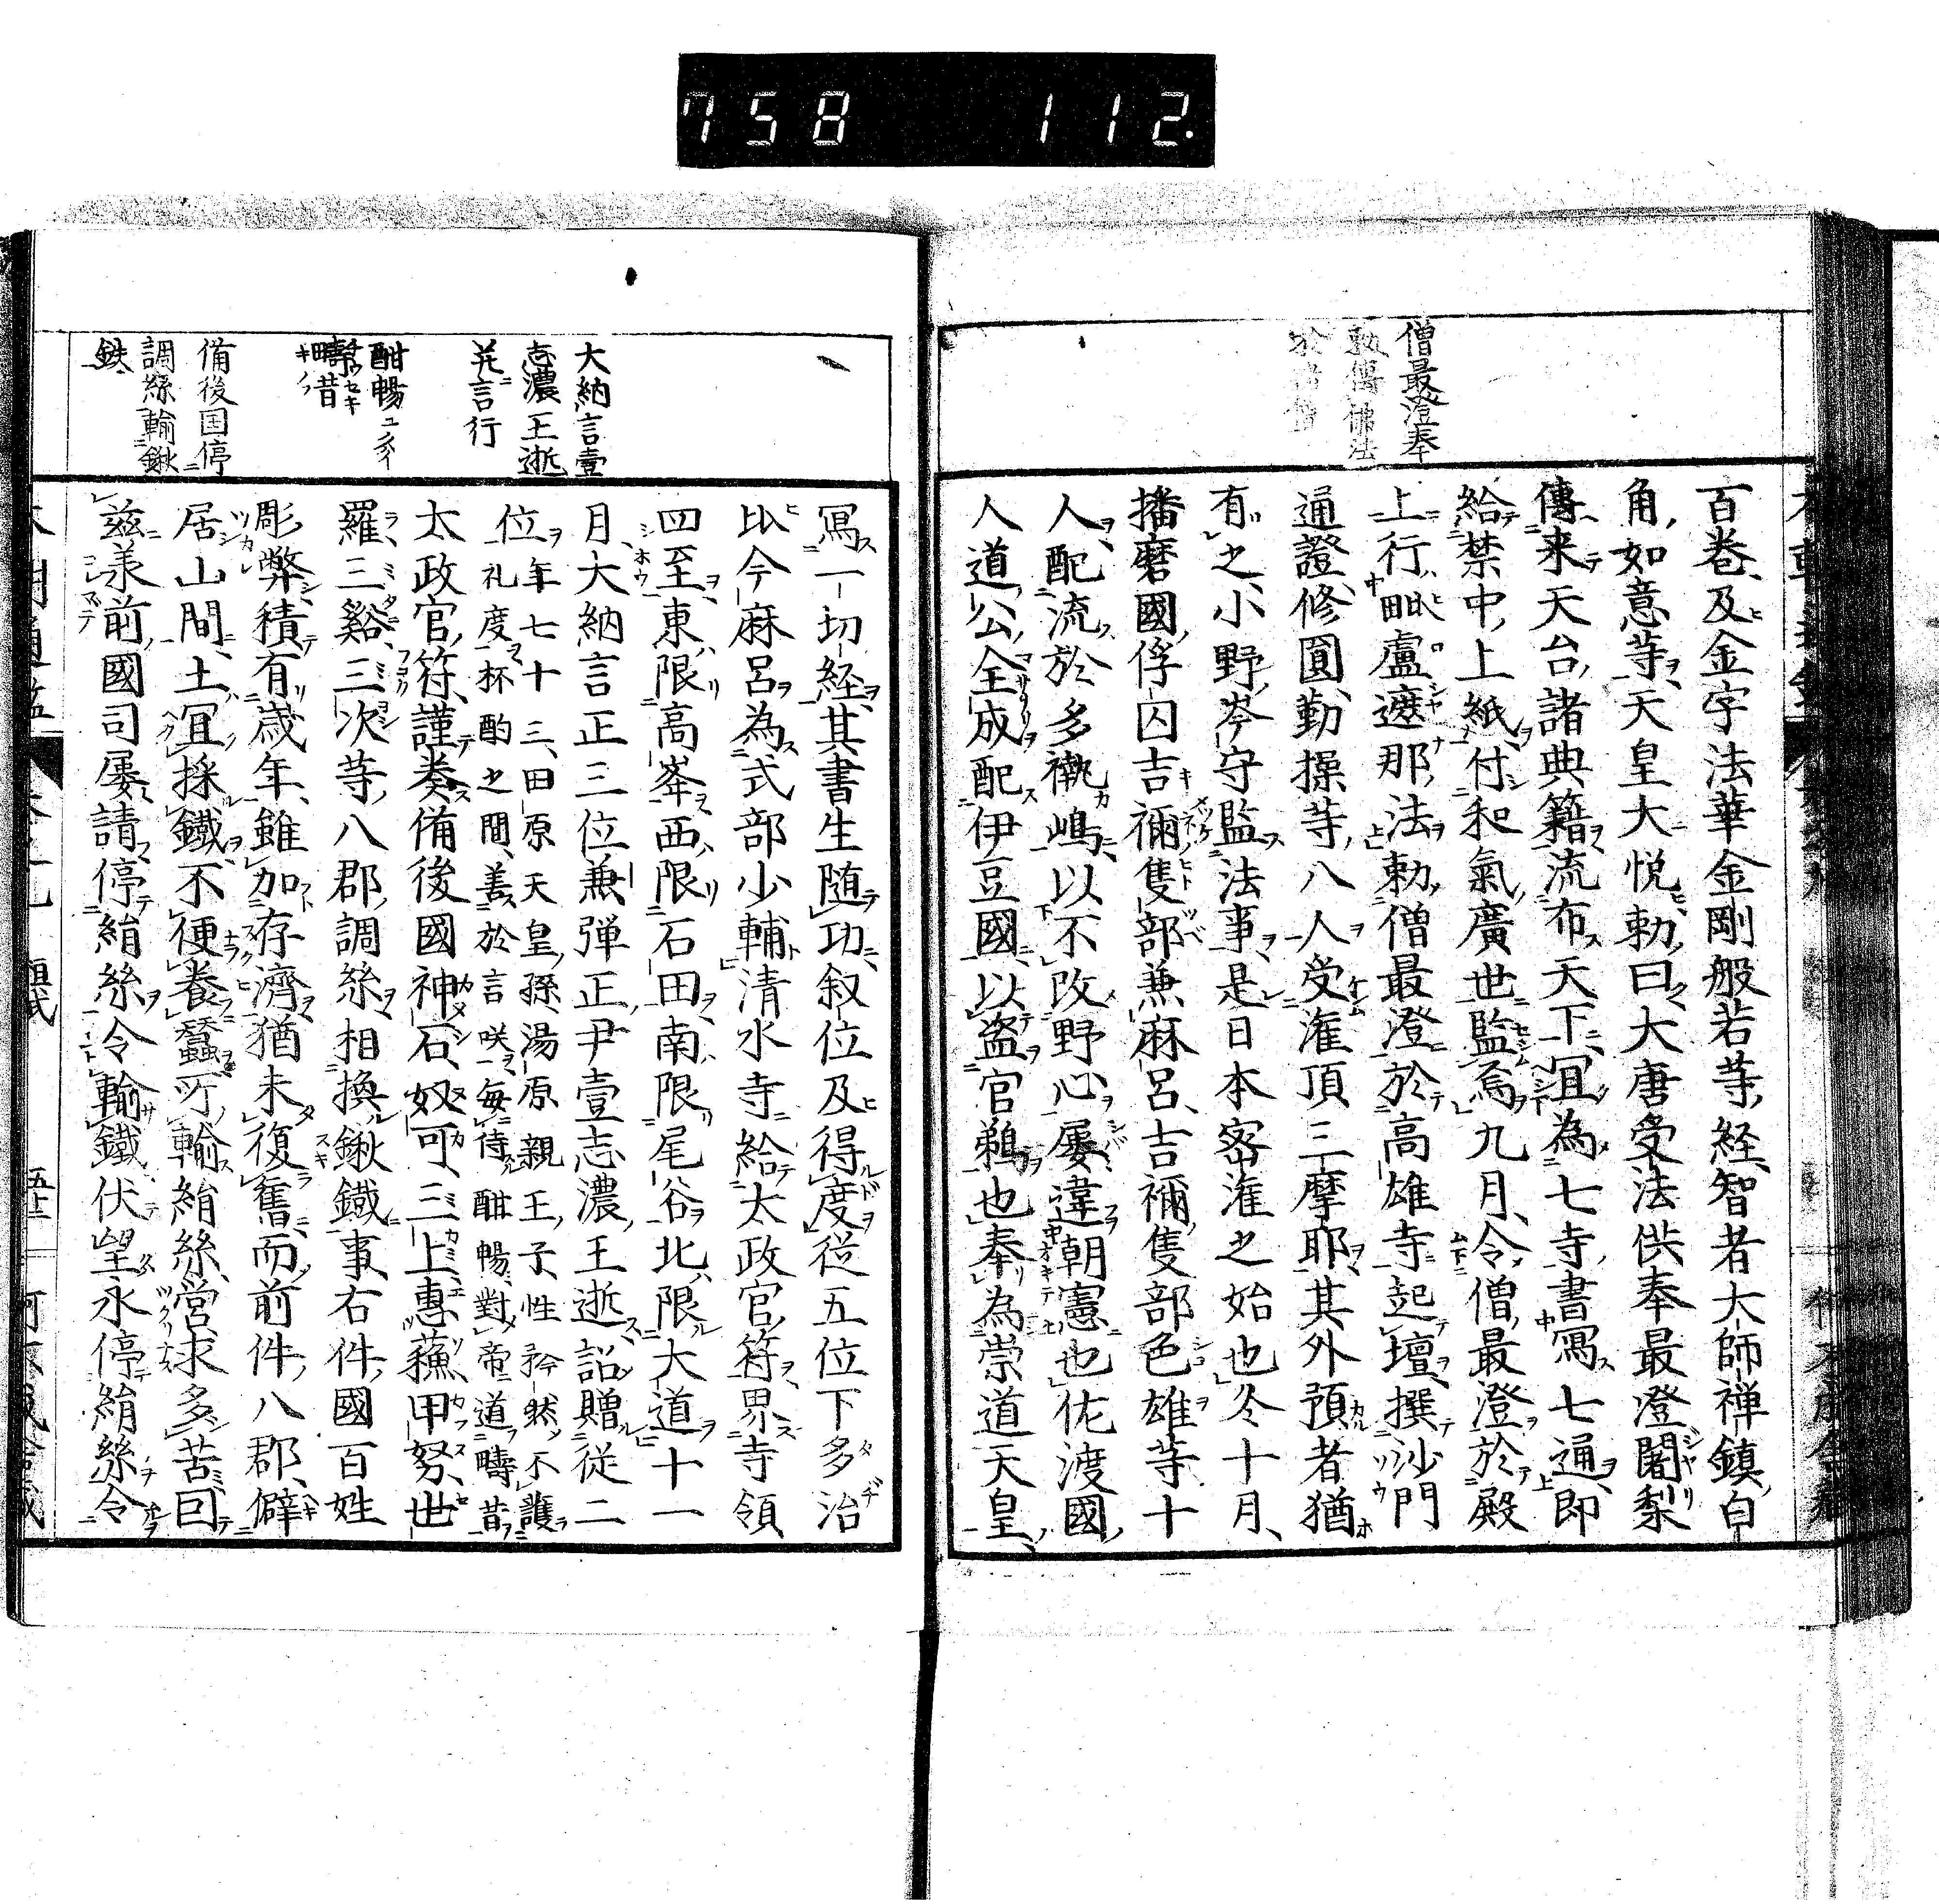 758 112.
僧最澄奉
勅傳佛法
百卷及金字法華金剛般若等経智者大師禅鎮白
角如意等天皇大悦勅曰大唐受法供奉最澄闍梨
傳来天台諸典籍流布天下冝為七寺書寫七通即
給禁中上紙付和氣廣世監焉九月令僧最澄於殿
上行毗盧遮那法勅僧最澄於高雄寺起壇撰沙門
通證修圓勤操等八人受潅頂三摩耶其外預者猶
有之小野岑守監法事是日本宻潅之始也冬十月
播磨國俘囚吉禰隻部兼麻呂吉禰隻部色雄等十
人配流於多褹嶋以不改野心屡違朝憲也佐渡國
人道公全成配伊豆國以盗官鵜也奉為崇道天皇
大納言壹
志濃王逝
并言行
酣暢
疇昔
備後国停
調絲輸鍬
鉄
寫一切経其書生随功叙位及得度従五位下多治
比今麻呂為式部少輔清水寺給太政官符界寺領
四至東限高峯西限石田南限尾谷北限大道十一
月大納言正三位兼弾正尹壹志濃王逝詔贈従二
位年七十三田原天皇孫湯原親王子性矜然不護
礼度杯酌之間善於言咲毎侍酣暢對帝道疇昔
太政官符謹奏備後國神石奴可三上惠蘓甲努世
羅三谿三次等八郡調絲相換鍬鐵事右件國百姓
彫弊積有歳年雖加存濟猶未復舊而前件八郡僻
居山間土冝採鐵不便養蠶所輸絹絲營求多苦囙
兹承前國司屡請停絹絲令輸鐵伏望永停絹絲令